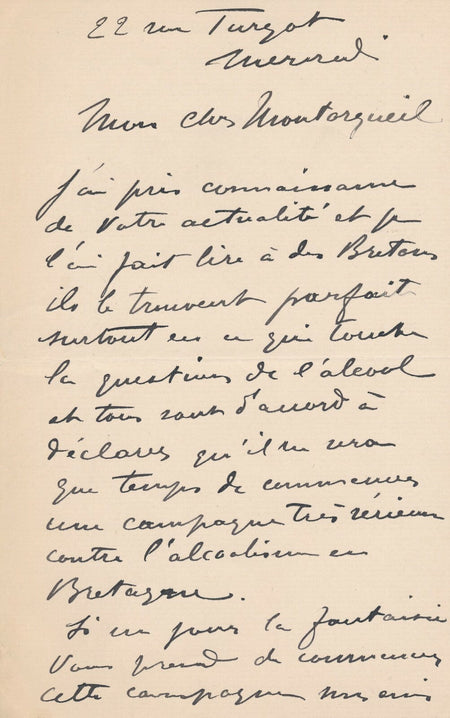 22 rue Turgot
Mercredi
Mon cher Montorgueil
J'ai pris connaissance
de votre actualité et je
l'ai fait lire à des Bretons
ils le trouvent parfait
surtout en ce qui touche
la question de l'alcool
et tous sont d'accord à
déclarer qu'il ne sera
que temps de commencer
une campagne très sérieuse
contre l'alcoolisme en
Bretagne.
Si un jour la fantaisie
vous prend de commencer
cette campagne mes amis